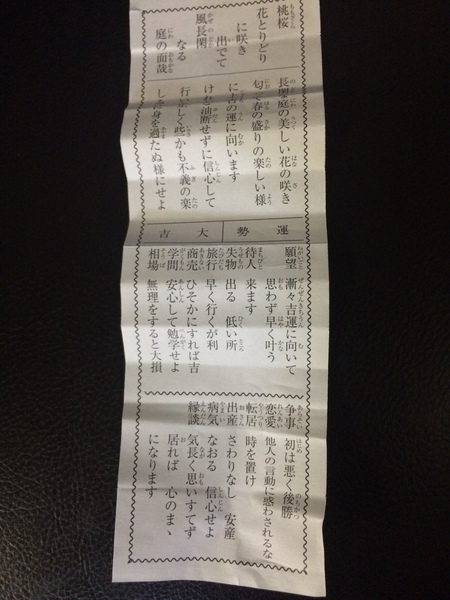 桃桜
花とりどり
に咲き
出でて
風長閑
なる
庭の面哉
長閑な庭の美しい花の咲き
匂う春の盛りの楽しい様
に吉の運に向います
油断せずに信心して
行正しく些かも不義の楽
し身を過たぬ様にせよ
運勢大吉
願望 漸々吉運に向いて
思わず早く叶う
待人 来ます
失物 出る 低い所
旅行 早く行くが利
商売 ひそかにすれば吉
学問 安心して勉学せよ
相場 無理をすると大損
争事 初は悪く後勝
恋愛 他人の言動に惑わされるな
転居 時を置け
出産 さわりなし 安産
病気 なおる 信心せよ
縁談 気長く思いすてず
居れば 心のまゝ
になります